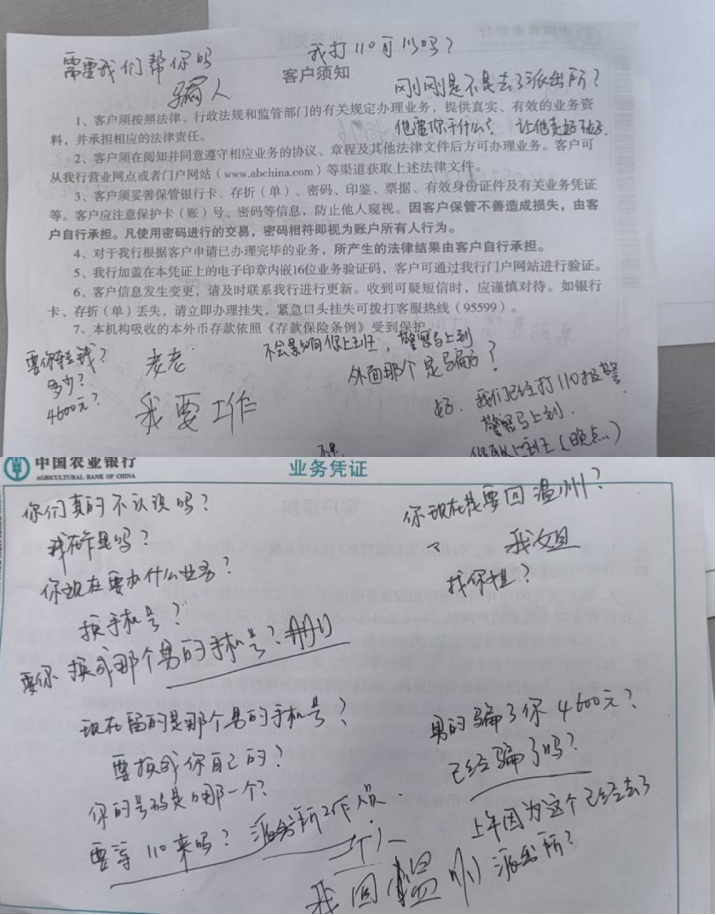 需要我们帮你吗
我打110可以吗？
骗人
客户须知
刚刚是不是去了派出所？
1、客户须按照法律、行政法规和监管部门的有关规定办理业务，提供真实、有效的业务资
料，并承担相应的法律责任。
他要你干什么？
2、客户须在阅知并同意遵守相应业务的协议、章程及其他法律文件后方可办理业务。客户可
从我行营业网点或者门户网站（www.abchina.com）等渠道获取上述法律文件。
3、客户须妥善保管银行卡、存折（单）、密码、印鉴、票据、有效身份证件及有关业务凭证
等。客户应注意保护卡（账）号、密码等信息，防止他人窥视。因客户保管不善造成损失，由客
户自行承担。凡使用密码进行的交易，密码相符即视为账户所有人行为。
4、对于我行根据客户申请已办理完毕的业务，所产生的法律结果由客户自行承担。
5、我行加盖在本凭证上的电子印章内嵌16位业务验证码，客户可通过我行门户网站进行验证。
6、客户信息发生变更，请及时联系我行进行更新。收到可疑短信时，应谨慎对待。如银行
卡、存折（单）丢失，请立即办理挂失，紧急口头挂失可拨打客服热线（95599）。
7、本机构吸收的本外币存款依照《存款保险条例》受到保护。
要你转钱？
多少？
4600元？
老老
我要工作
不会影响你上班，警察马上到
外面那个是骗子？
好．我们已经打110报警
警察马上到．
中国农业银行
AGRICULTURAL BANK OF CHINA
业务凭证
你们真的不认识吗？
你现在要办什么业务？
换手机号？
要你换成那个男的手机号？
现在留的是那个男的手机号？
要换成你自己的？
你的号码是哪一个？
要等110来吗？派出所工作人员．
你现在是要回温州？
我姐
找你姐？
男的骗了你4600元？
已经骗了吗？
上午因为这个已经去了
派出所？
我回温州